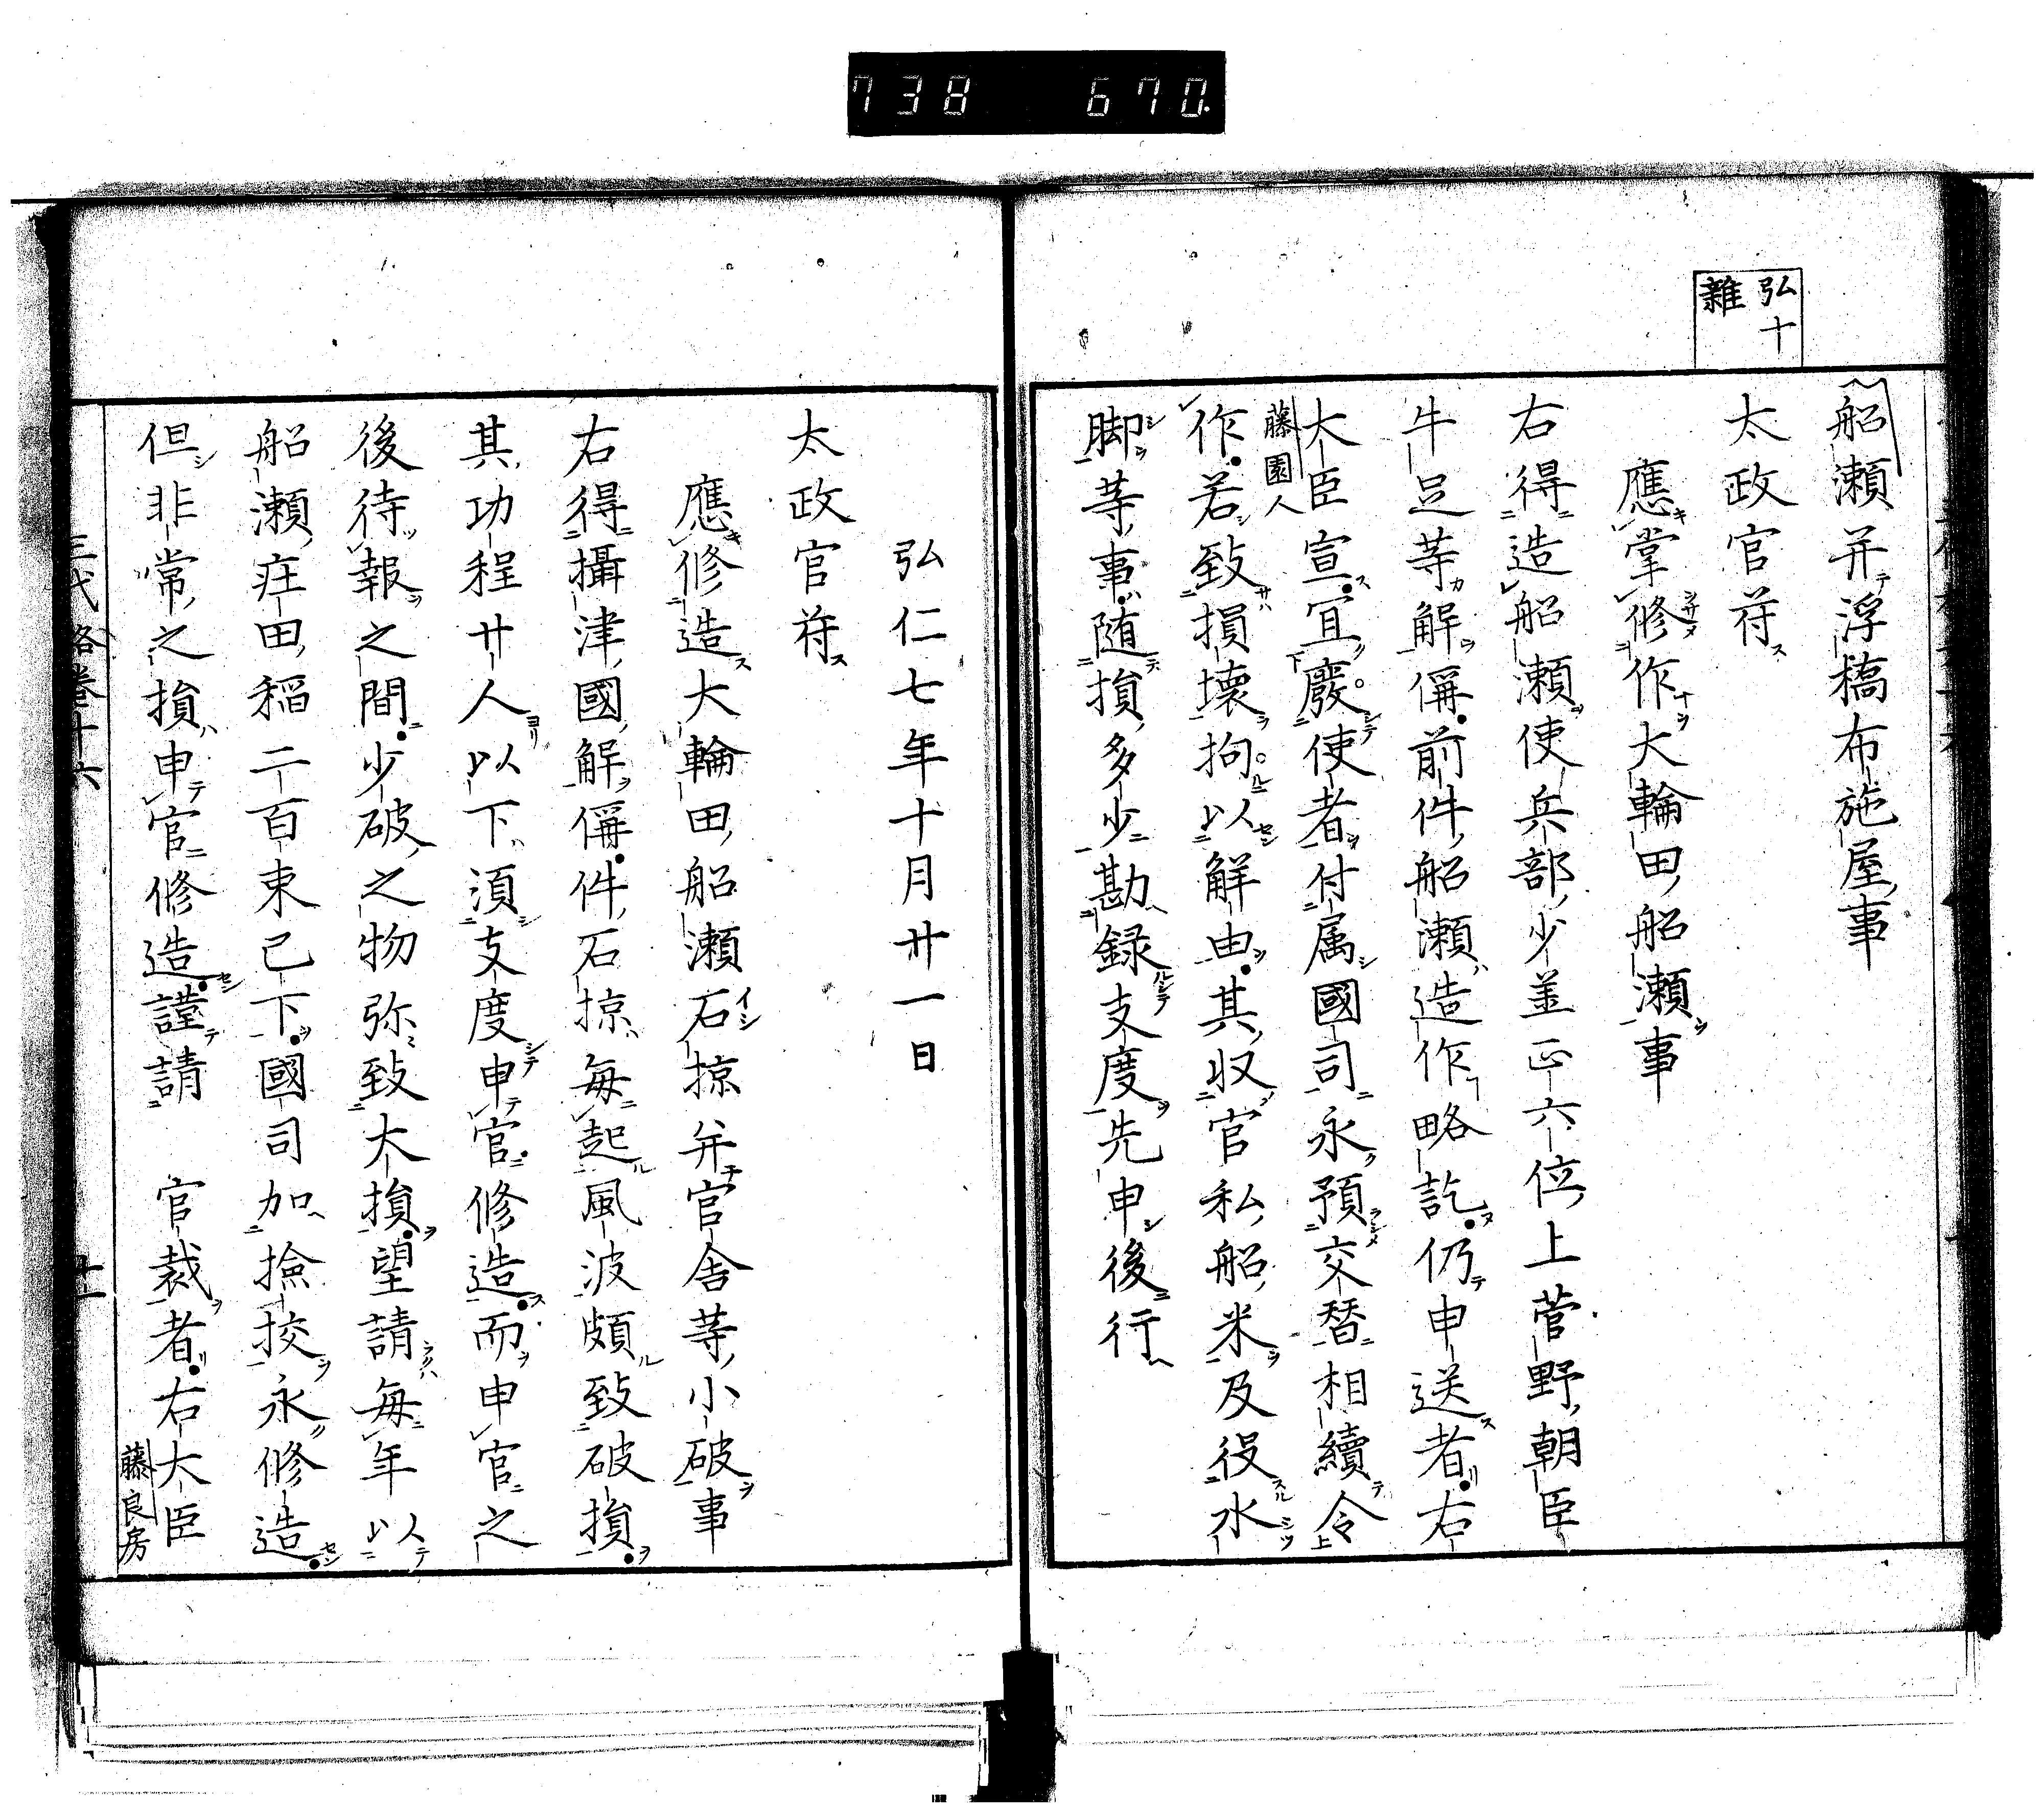 738 670.
弘十
雑
船瀬并浮橋布施屋事
太政官符
應掌修作大輪田船瀬事
右得造船瀬使兵部少丞正六位上菅野朝臣
牛足等解偁前件船瀬造作略訖仍申送者右
大臣宣冝廢使者付属國司永預交替相續令
藤園人
作若致損壊拘以解由其収官私船米及役水
脚等事随損多少勘録支度先申後行
弘仁七年十月廿一日
太政官符
應修造大輪田船瀬石椋并官舎等小破事
右得攝津國解偁件石椋毎起風波頗致破損
其功程廿人以下湏支度申官修造而申官之
後待報之間少破之物弥致大損望請毎年以
船瀬庄田稲二百束已下國司加撿挍永修造
但非常之損申官修造謹請 官裁者右大臣
藤良房
三代格巻十六